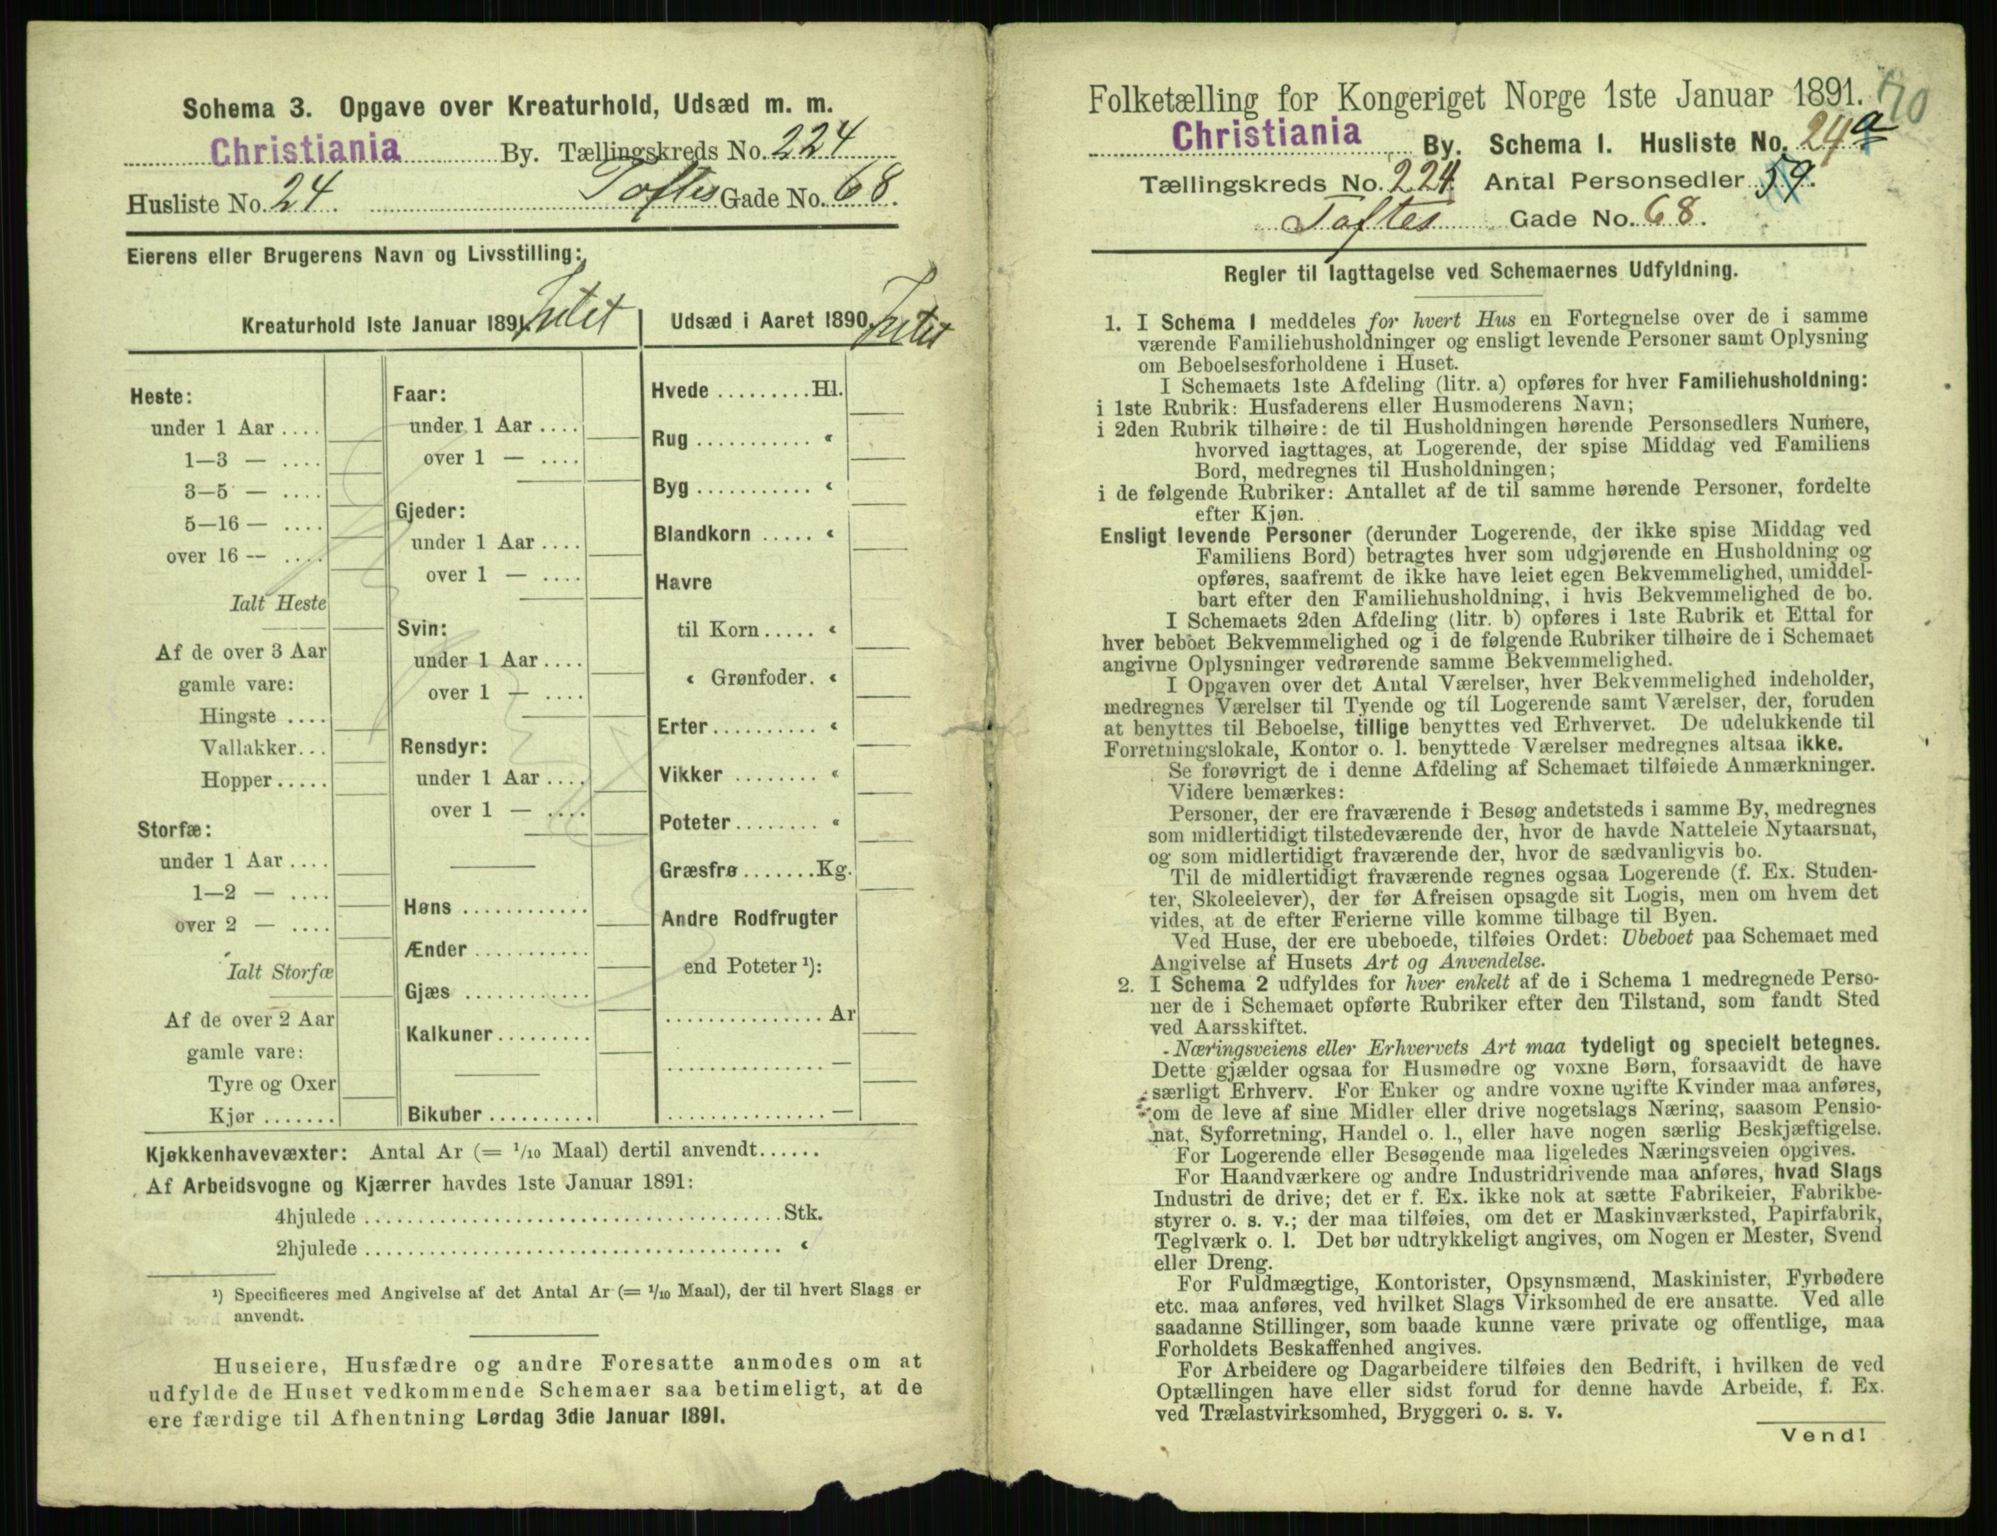 Schema 3. Opgave over Kreaturhold, Udsæd m. m.
Christiania By. Tællingskreds No. 224
Husliste No. 24. Toftes Gade No. 68.
Eierens eller Brugerens Navn og Livsstilling:
Kreaturhold 1ste Januar 1891. Intet
Heste:
under 1 Aar ....
1—3 — ....
3—5 — ....
5—16 — ....
over 16 — ....
Ialt Heste
Af de over 3 Aar
gamle vare:
Hingste ....
Vallakker...
Hopper .....
Storfæ:
under 1 Aar ....
1—2 — ....
over 2 — ....
Ialt Storfæ
Af de over 2 Aar
gamle vare:
Tyre og Oxer
Kjør .......
Faar:
under 1 Aar ....
over 1 — ....
Gjeder:
under 1 Aar ....
over 1 — ....
Svin:
under 1 Aar ....
over 1 — ....
Rensdyr:
under 1 Aar ....
over 1 — ....
Høns ............
Ænder ...........
Gjæs ............
Kalkuner .........
Bikuber ..........
Udsæd i Aaret 1890. Intet
Hvede ......... Hl.
Rug ........... “
Byg ........... “
Blandkorn ..... “
Havre
til Korn ..... “
“ Grønfoder. “
Erter .......... “
Vikker ........ “
Poteter ........ “
Græsfrø ....... Kg.
Andre Rodfrugter
end Poteter ¹):
............... Ar
............... —
............... —
Kjøkkenhavevæxter: Antal Ar (= 1/10 Maal) dertil anvendt ......
Af Arbeidsvogne og Kjærrer havdes 1ste Januar 1891:
4hjulede ........................................ Stk.
2hjulede ........................................ “
¹) Specificeres med Angivelse af det Antal Ar (= 1/10 Maal), der til hvert Slags er
anvendt.
Huseiere, Husfædre og andre Foresatte anmodes om at
udfylde de Huset vedkommende Schemaer saa betimeligt, at de
ere færdige til Afhentning Lørdag 3die Januar 1891.
Folketælling for Kongeriget Norge 1ste Januar 1891.
Christiania By. Schema 1. Husliste No. 24 a
Tællingskreds No. 224. Antal Personsedler 59.
Toftes Gade No. 68.
Regler til Iagttagelse ved Schemaernes Udfyldning.
1. I Schema 1 meddeles for hvert Hus en Fortegnelse over de i samme
værende Familiehusholdninger og ensligt levende Personer samt Oplysning
om Beboelsesforholdene i Huset.
I Schemaets 1ste Afdeling (litr. a) opføres for hver Familiehusholdning:
i 1ste Rubrik: Husfaderens eller Husmoderens Navn;
i 2den Rubrik tilhøire: de til Husholdningen hørende Personsedlers Numere,
hvorved iagttages, at Logerende, der spise Middag ved Familiens
Bord, medregnes til Husholdningen;
i de følgende Rubriker: Antallet af de til samme hørende Personer, fordelte
efter Kjøn.
Ensligt levende Personer (derunder Logerende, der ikke spise Middag ved
Familiens Bord) betragtes hver som udgjørende en Husholdning og
opføres, saafremt de ikke have leiet egen Bekvemmelighed, umiddel-
bart efter den Familiehusholdning, i hvis Bekvemmelighed de bo.
I Schemaets 2den Afdeling (litr. b) opføres i 1ste Rubrik et Ettal for
hver beboet Bekvemmelighed og i de følgende Rubriker tilhøire de i Schemaet
angivne Oplysninger vedrørende samme Bekvemmelighed.
I Opgaven over det Antal Værelser, hver Bekvemmelighed indeholder,
medregnes Værelser til Tyende og til Logerende samt Værelser, der, foruden
at benyttes til Beboelse, tillige benyttes ved Erhvervet. De udelukkende til
Forretningslokale, Kontor o. l. benyttede Værelser medregnes altsaa ikke.
Se forøvrigt de i denne Afdeling af Schemaet tilføiede Anmærkninger.
Videre bemærkes:
Personer, der ere fraværende i Besøg andetsteds i samme By, medregnes
som midlertidigt tilstedeværende der, hvor de havde Natteleie Nytaarsnat,
og som midlertidigt fraværende der, hvor de sædvanligvis bo.
Til de midlertidigt fraværende regnes ogsaa Logerende (f. Ex. Studen-
ter, Skoleelever), der før Afreisen opsagde sit Logis, men om hvem det
vides, at de efter Ferierne ville komme tilbage til Byen.
Ved Huse, der ere ubeboede, tilføies Ordet: Ubeboet paa Schemaet med
Angivelse af Husets Art og Anvendelse.
2. I Schema 2 udfyldes for hver enkelt af de i Schema 1 medregnede Perso-
ner de i Schemaet opførte Rubriker efter den Tilstand, som fandt Sted
ved Aarsskiftet.
Næringsveiens eller Erhvervets Art maa tydeligt og specielt betegnes.
Dette gjælder ogsaa for Husmødre og voxne Børn, forsaavidt de have
særligt Erhverv. For Enker og andre voxne ugifte Kvinder maa anføres,
om de leve af sine Midler eller drive nogetslags Næring, saasom Pensio-
nat, Syforretning, Handel o. l., eller have nogen særlig Beskjæftigelse.
For Logerende eller Besøgende maa ligeledes Næringsveien opgives.
For Haandværkere og andre Industridrivende maa anføres, hvad Slags
Industri de drive; det er f. Ex. ikke nok at sætte Fabrikeier, Fabrikbe-
styrer o. s. v.; der maa tilføies, om det er Maskinværksted, Papirfabrik,
Teglværk o. l. Det bør udtrykkeligt angives, om Nogen er Mester, Svend
eller Dreng.
For Fuldmægtige, Kontorister, Opsynsmænd, Maskinister, Fyrbødere
etc. maa anføres, ved hvilket Slags Virksomhed de ere ansatte. Ved alle
saadanne Stillinger, som baade kunne være private og offentlige, maa
Forholdets Beskaffenhed angives.
For Arbeidere og Dagarbeidere tilføies den Bedrift, i hvilken de ved
Optællingen have eller sidst forud for denne havde Arbeide, f. Ex.
ved Trælastvirksomhed, Bryggeri o. s. v.
Vend!